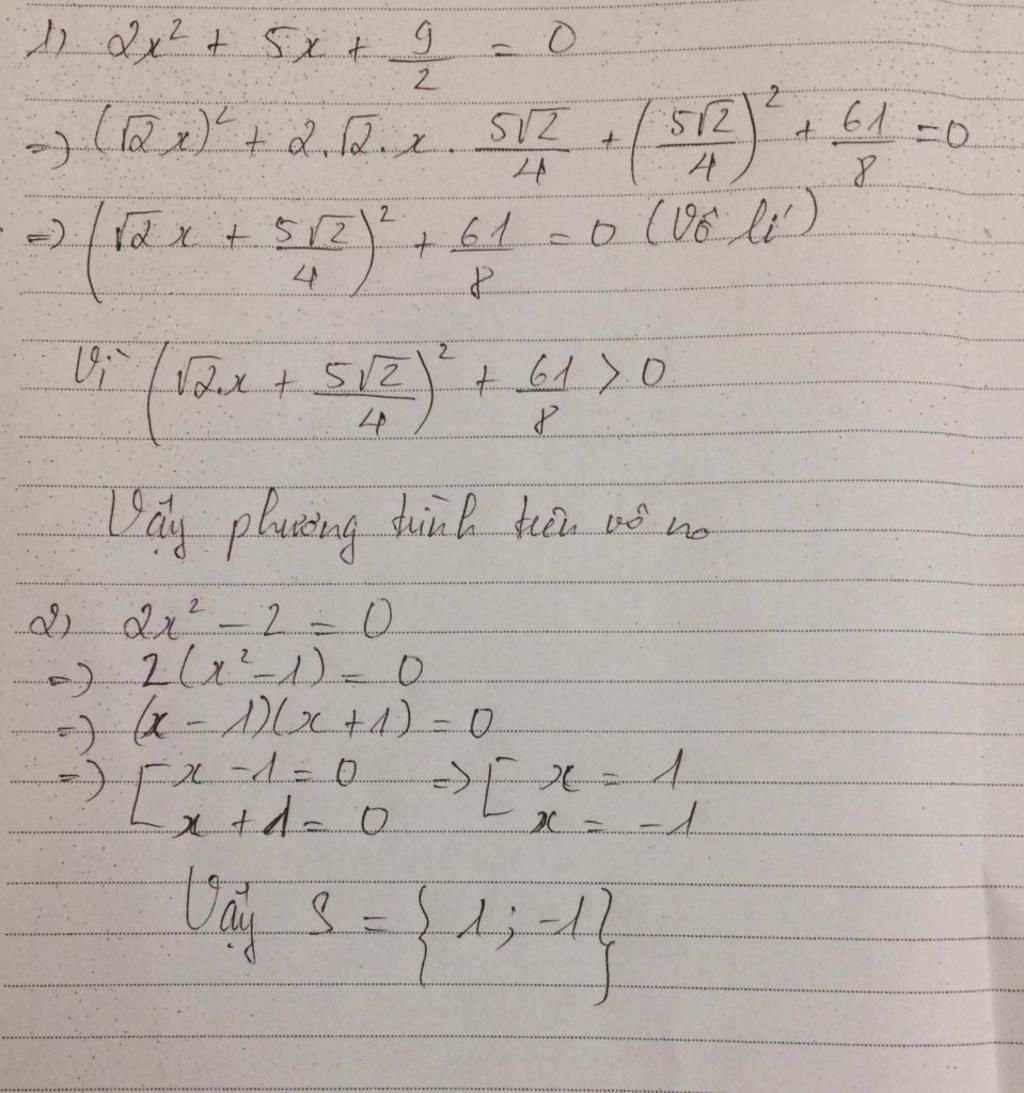 1) 2x² + 5x + 9/2 = 0
=> (√2x)² + 2.√2.x. 5√2/4 + (5√2/4)² + 61/8 = 0
=> (√2x + 5√2/4)² + 61/8 = 0 (Vô lí)
Vì (√2.x + 5√2/4)² + 61/8 > 0
Vậy phương trình trên vô no
2) 2x² - 2 = 0
=> 2(x² - 1) = 0
=> (x - 1)(x + 1) = 0
=> [ x - 1 = 0 => [ x = 1
x + 1 = 0 x = -1
Vậy S = { 1 ; -1 }